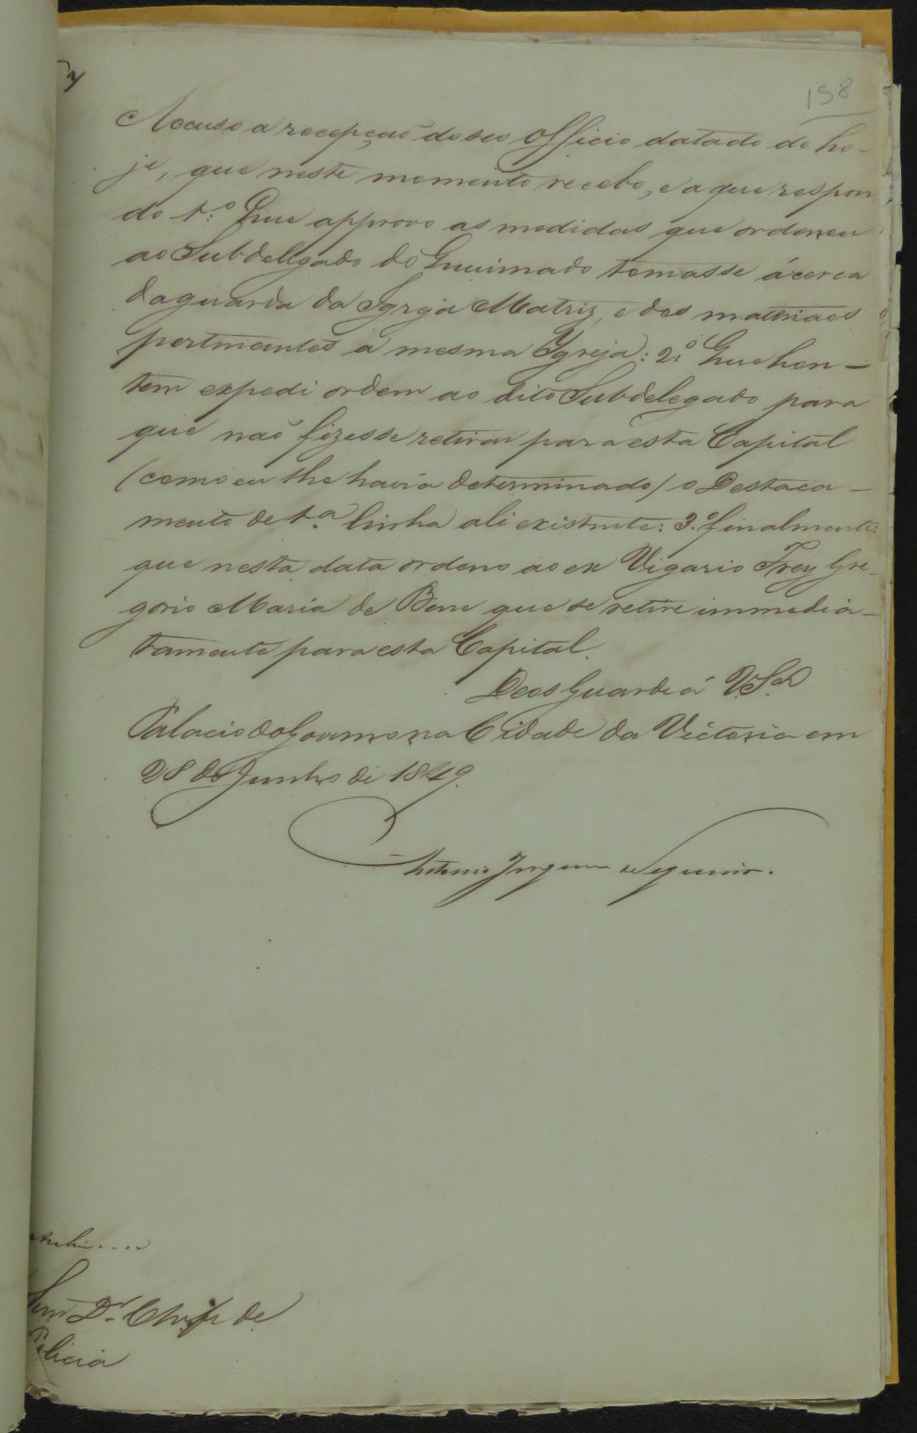 158
Accuso a recepçaõ do seo officio datado de ho-
je, que neste momento recebo, e a que respon
do 1.º Que approvo as medidas que ordenou
ao Subdelegado do Queimado tomasse ácerca
da guarda da Igreja Matriz, e dos matriaes
pertencentes a mesma Igreja: 2.º Que hon-
tem expedi ordem ao dito Subdelegado para
que naõ fizesse retirar para esta Capital
(como eu lhe havia determinado) o Destaca-
mento de 1.ª linha ali existente: 3.º finalmente:
que nesta data ordeno ao ex Vigario Frey Gre-
gorio Maria de Bene que se retire immedia-
tamente para esta Capital.
Deos Guarde á V. S.ª
Palacio do Governo na Cidade da Victoria em
28 de Junho de 1849.
Antonio Joaquim de Siqueira.
Senr. Dr. Chefe de
Policia